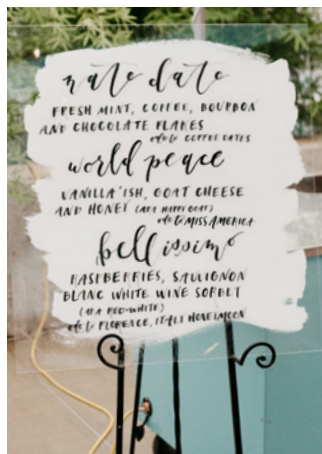 nate date
FRESH MINT, COFFEE, BOURBON
AND CHOCOLATE FLAKES
ode to COFFEE DATES
world peace
VANILLA'ISH, GOAT CHEESE
AND HONEY (AKA HAPPY GOAT)
ode to MISS AMERICA
bellissimo
RASPBERRIES, SAUVIGNON
BLANC WHITE WINE SORBET
(AKA RED+WHITE)
ode to FLORENCE, ITALY HONEYMOON